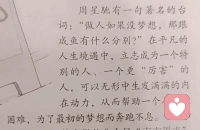 周星驰有一句著名的台
词：“做人如果没梦想，那跟
咸鱼有什么分别？”在平凡的
人生境遇中，立志成为一个特
别的人、一个更“厉害”的
人，可以无形中生发满满的内
在动力，从而帮助一个
困难，为了最初的梦想而奔跑不息。